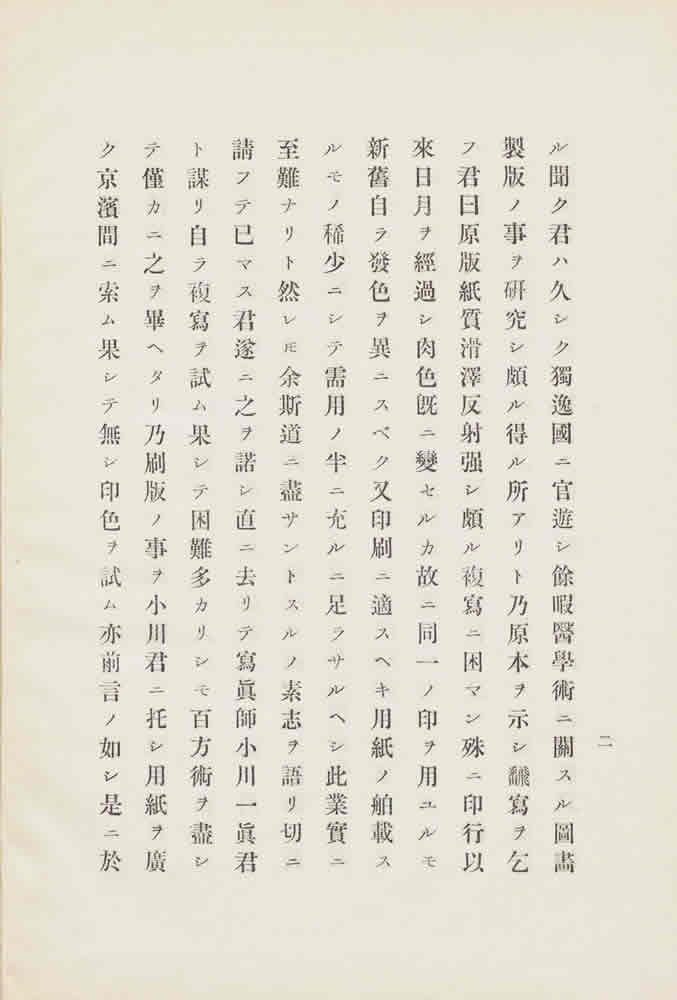 ル聞ク君ハ久シク獨逸國ニ官遊シ餘暇醫學術ニ關スル圖畵
製版ノ事ヲ硏究シ頗ル得ル所アリト乃原本ヲ示シ飜寫ヲ乞
フ君曰原版紙質滑澤反射强シ頗ル複寫ニ困マン殊ニ印行以
來日月ヲ經過シ肉色旣ニ變セルカ故ニ同一ノ印ヲ用ユルモ
新舊自ラ發色ヲ異ニスベク又印刷ニ適スヘキ用紙ノ舶載ス
ルモノ稀少ニシテ需用ノ半ニ充ルニ足ラサルヘシ此業實ニ
至難ナリト然レ𪜈余斯道ニ盡サントスルノ素志ヲ語リ切ニ
請フテ已マス君遂ニ之ヲ諾シ直ニ去リテ寫眞師小川一眞君
ト謀リ自ラ複寫ヲ試ム果シテ困難多カリシモ百方術ヲ盡シ
テ僅カニ之ヲ畢ヘタリ乃刷版ノ事ヲ小川君ニ托シ用紙ヲ廣
ク京濱間ニ索ム果シテ無シ印色ヲ試ム亦前言ノ如シ是ニ於
二